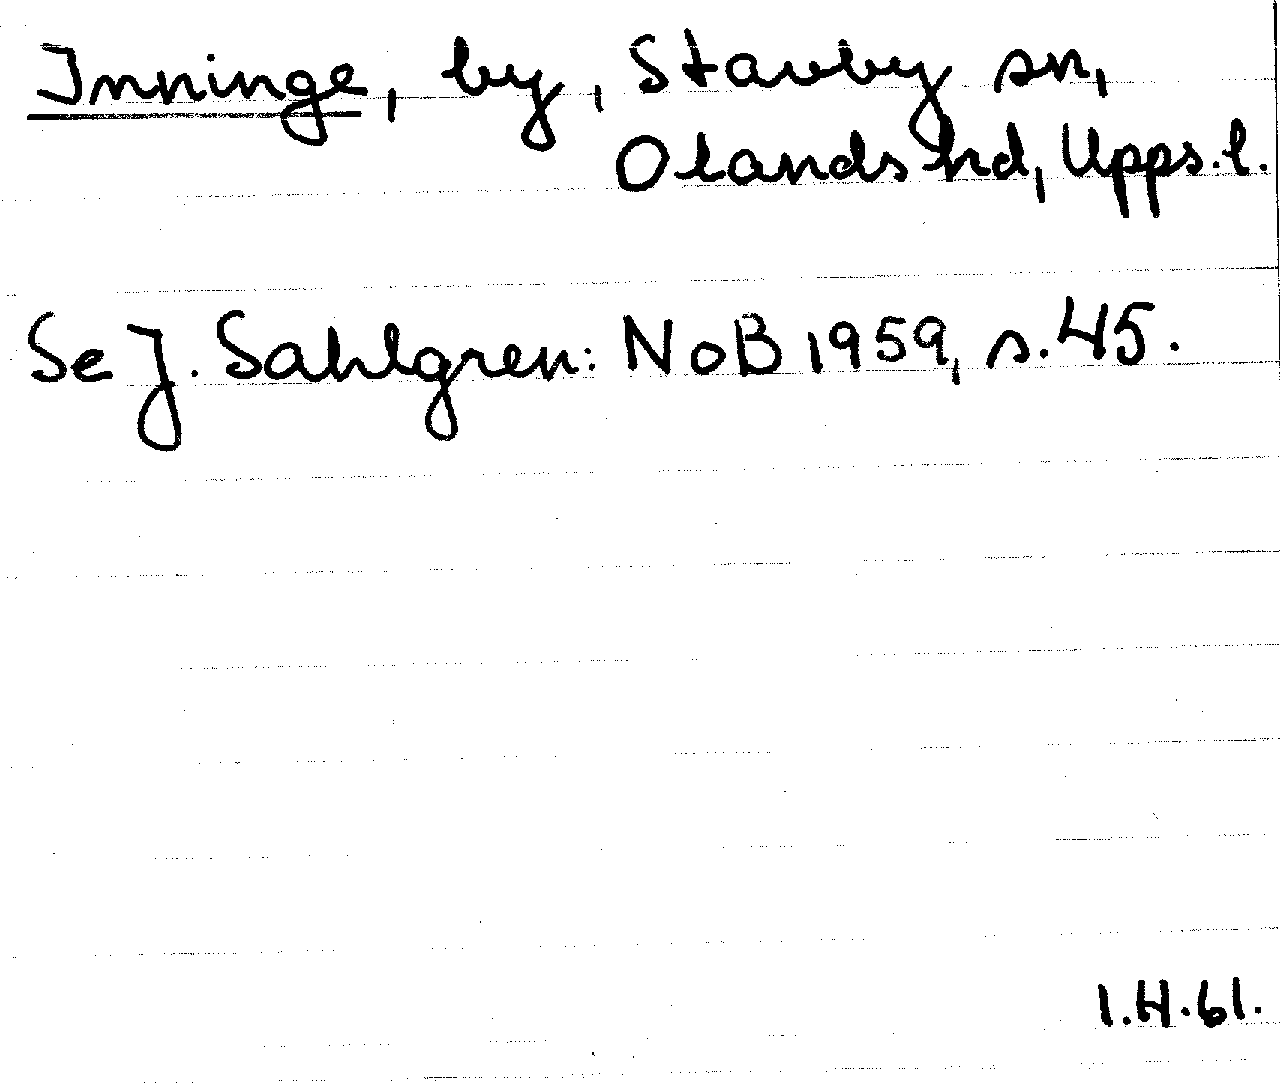 Inninge, by, Stavby sn,
Olands hd, Upps. l.
Se J. Sahlgren: NoB 1959, s. 45.
1.4.61.